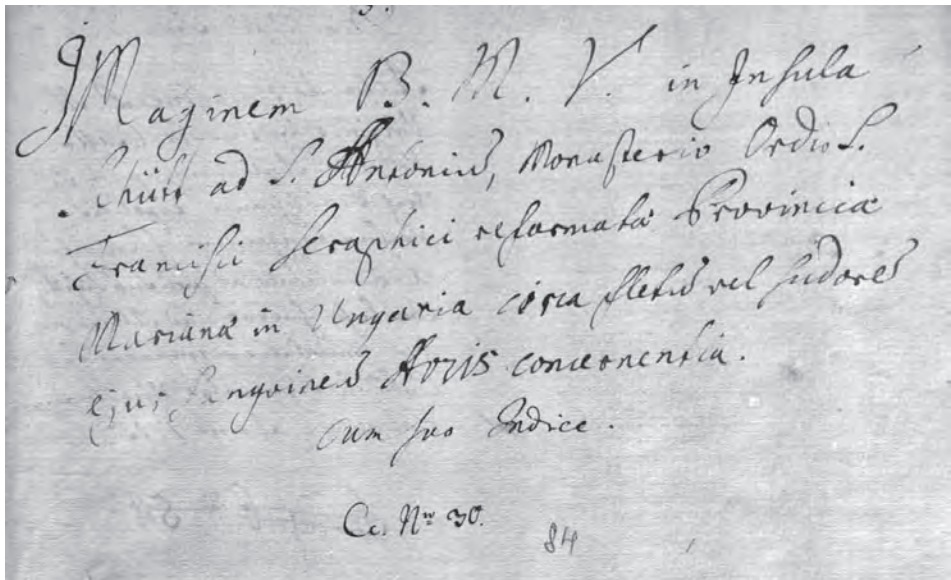 IMaginem B. M. V. in Insula
Schütt ad S. Antoniū, Monasterio Ordis S.
Francisci Seraphici reformatæ Provinciæ
Marianæ in Ungaria circa fletū vel sudorē
ejus sanguineū concernentia.
cum suo Indice.
Cc. Nro 30.
84